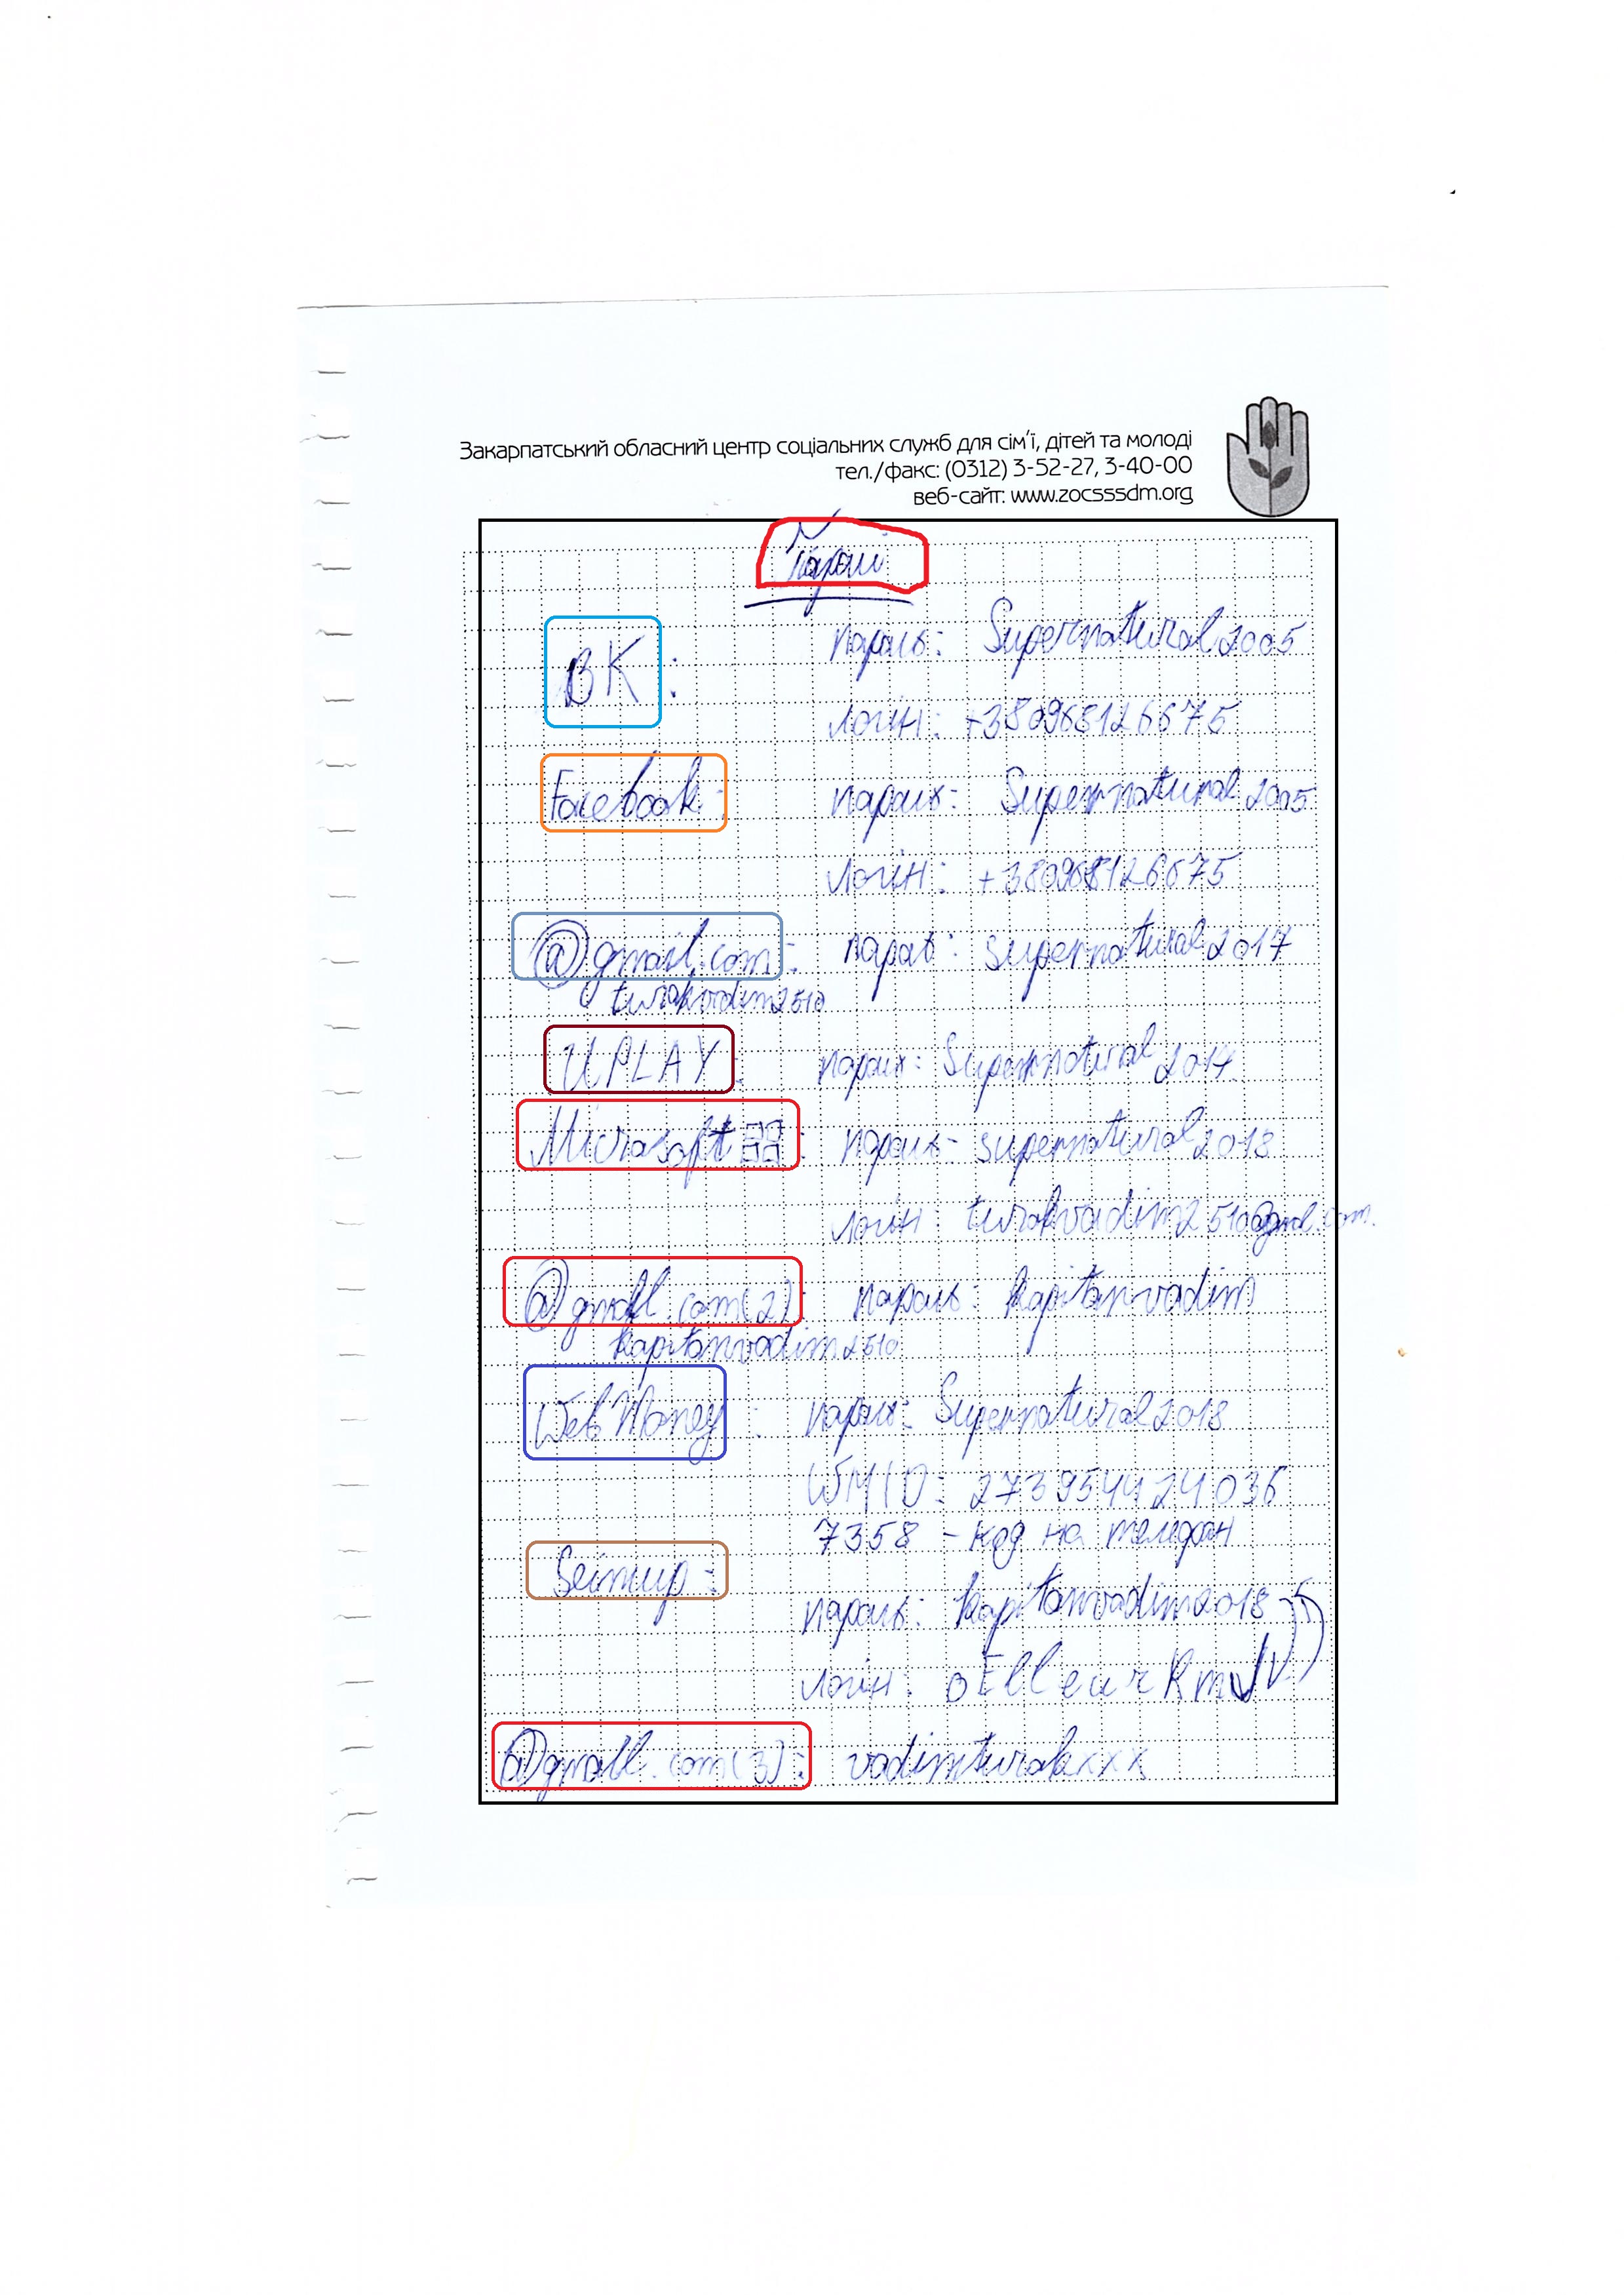 Закарпатський обласний центр соціальних служб для сім'ї, дітей та молоді
тел./факс: (0312) 3-52-27, 3-40-00
веб-сайт: www.zocsssdm.org
Паролі
ВК: пароль: Supernatural2005
логін: +380968126675
Facebook: пароль: Supernatural2005
логін: +380968126675
@gmail.com: пароль: supernatural2017
turakvadim2510
UPLAY: пароль: Supernatural2017
Microsoft: пароль- supernatural2018
логін: turakvadim2510@gmail.com.
@gmail.com(2): пароль: kapitanvadim
kapitanvadim2510
WebMoney: пароль: Supernatural2018
WMID: 273954424036
7358 - код на телефон
пароль: kapitanvadim2018
логін:
@gmail.com(3): vadimturakxxx